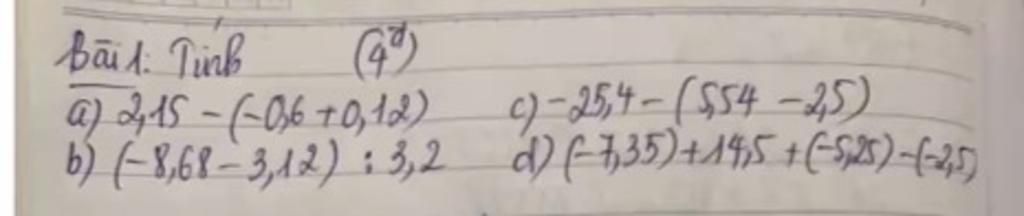 Bài 1: Tính (4đ)
a) 2,15 - (-0,6 + 0,12) c) -25,4 - (5,54 - 2,5)
b) (-8,68 - 3,12) : 3,2 d) (-7,35) + 14,5 + (-5,25) - (-2,5)